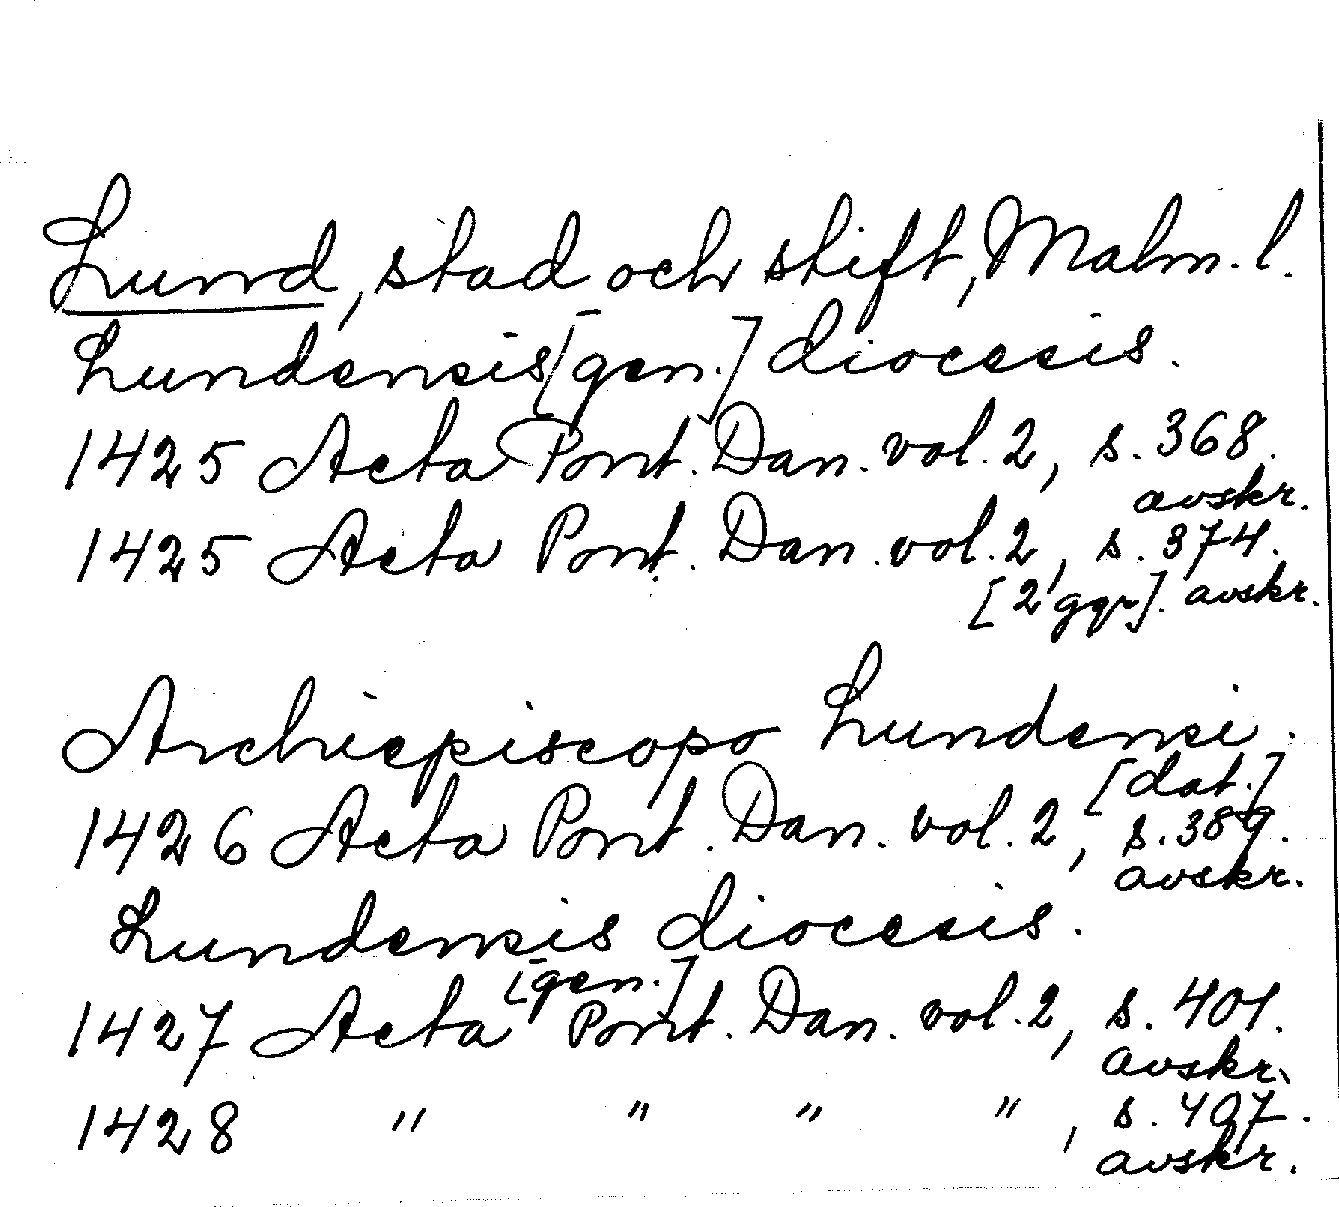 Lund, stad och stift, Malm. l.
Lundensis [gen.] diocesis.
1425 Acta Pont. Dan. vol. 2, s. 368.
avskr.
1425 Acta Pont. Dan. vol. 2, s. 374.
[2 ggr]. avskr.
Archiepiscopo Lundensi.
[dat.]
1426 Acta Pont. Dan. vol. 2, s. 389.
avskr.
Lundensis diocesis.
[gen.]
1427 Acta Pont. Dan. vol. 2, s. 401.
avskr.
1428 " " " " , s. 407.
avskr.